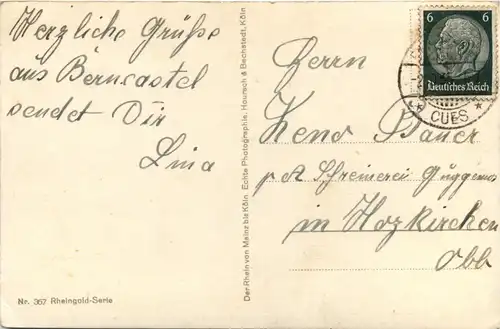 Herzliche Grüße
aus Berncastel
sendet Dir
Lina
Nr. 367 Rheingold-Serie
Der Rhein von Mainz bis Köln. Echte Photographie. Hoursch & Bechstedt, Köln
6 6
Deutsches Reich
* CUES *
Herrn
Xeno Bauer
p A Schreinerei Guggemos
in Hozkirchen
Obb